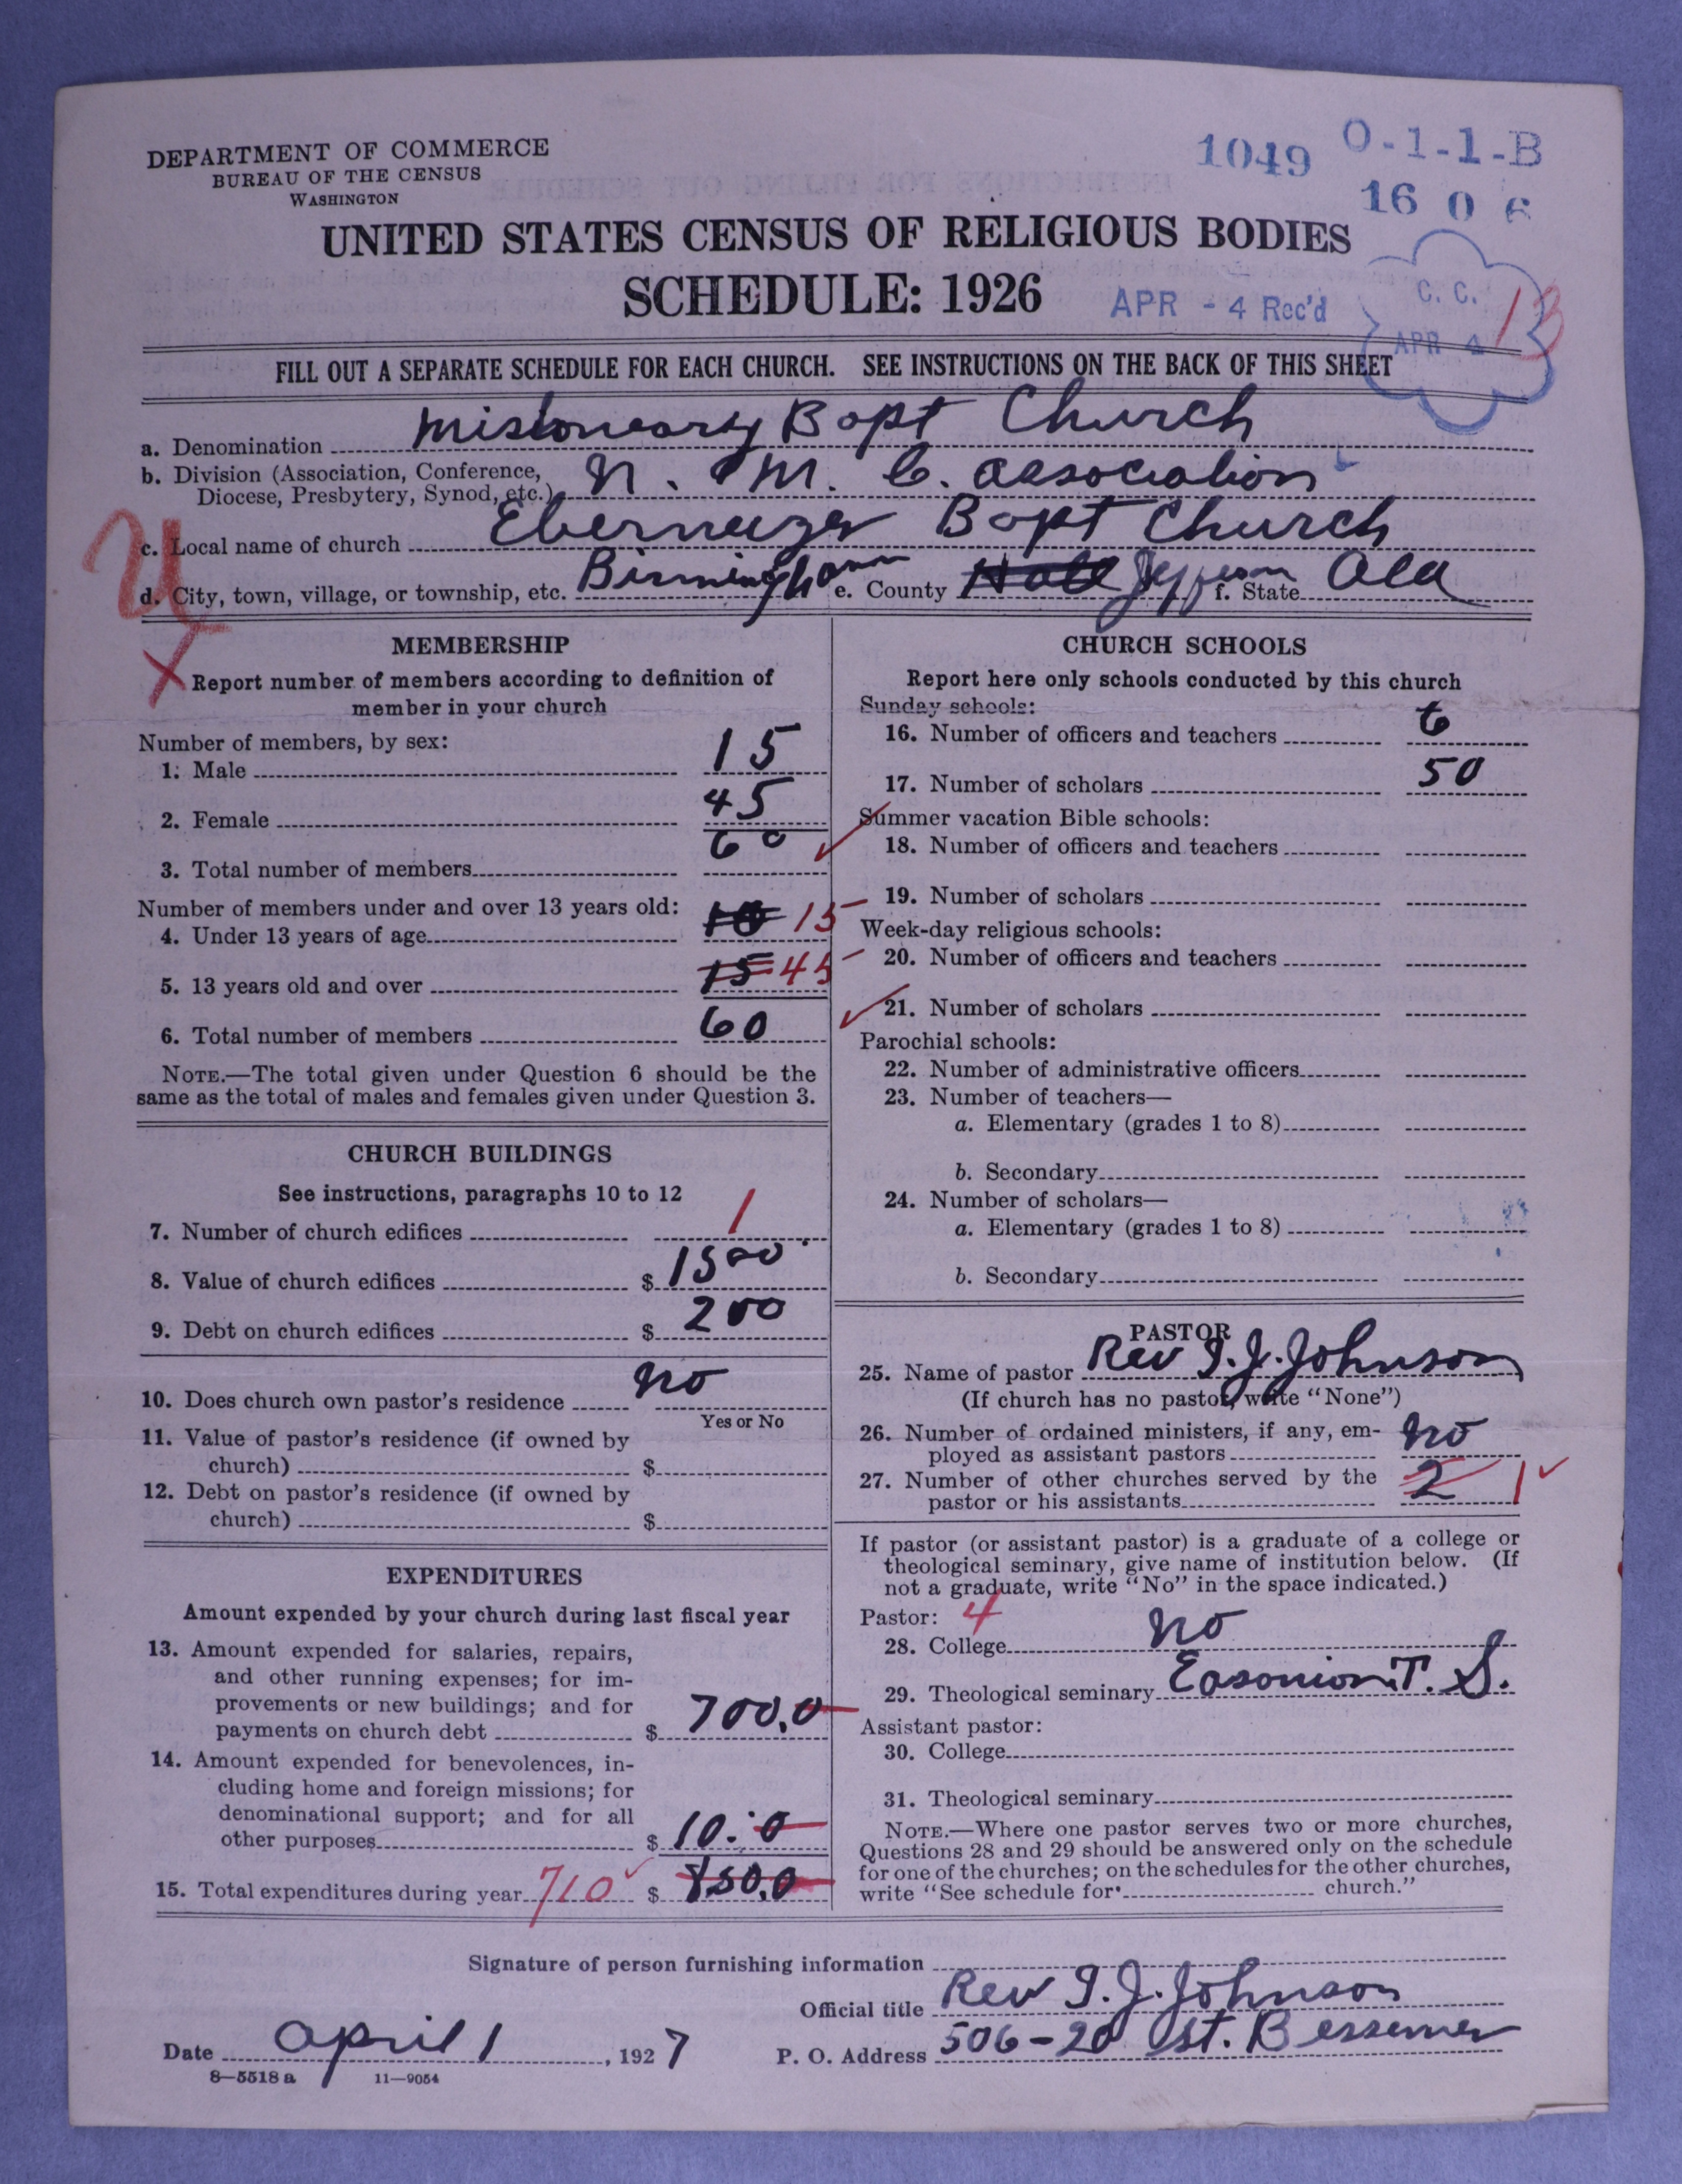 DEPARTMENT OF COMMERCE
BUREAU OF THE CENSUS
WASHINGTON
1049 O-1-1-B
16 0 6
UNITED STATES CENSUS OF RELIGIOUS BODIES
SCHEDULE: 1926
APR - 4 Rec'd
C. C.
APR 4
13
FILL OUT A SEPARATE SCHEDULE FOR EACH CHURCH. SEE INSTRUCTIONS ON THE BACK OF THIS SHEET
a. Denomination Missionary Bapt Church
b. Division (Association, Conference,
Diocese, Presbytery, Synod, etc.) N. M. C. Association
c. Local name of church Ebernezer Bapt Church
d. City, town, village, or township, etc. Birmingham e. County Jefferson f. State Ala
U
X
MEMBERSHIP
Report number of members according to definition of
member in your church
Number of members, by sex:
1. Male 15
2. Female 45
3. Total number of members 60
Number of members under and over 13 years old:
4. Under 13 years of age 10 15
5. 13 years old and over 15 45
6. Total number of members 60
NOTE.—The total given under Question 6 should be the
same as the total of males and females given under Question 3.
CHURCH BUILDINGS
See instructions, paragraphs 10 to 12
7. Number of church edifices 1
8. Value of church edifices $ 1500
9. Debt on church edifices $ 200
10. Does church own pastor's residence no
Yes or No
11. Value of pastor's residence (if owned by
church) $
12. Debt on pastor's residence (if owned by
church) $
EXPENDITURES
Amount expended by your church during last fiscal year
13. Amount expended for salaries, repairs,
and other running expenses; for im-
provements or new buildings; and for
payments on church debt $ 700.0
14. Amount expended for benevolences, in-
cluding home and foreign missions; for
denominational support; and for all
other purposes $ 10.0
15. Total expenditures during year 710 $ 850.0
CHURCH SCHOOLS
Report here only schools conducted by this church
Sunday schools:
16. Number of officers and teachers 6
17. Number of scholars 50
Summer vacation Bible schools:
18. Number of officers and teachers
19. Number of scholars
Week-day religious schools:
20. Number of officers and teachers
21. Number of scholars
Parochial schools:
22. Number of administrative officers
23. Number of teachers—
a. Elementary (grades 1 to 8)
b. Secondary
24. Number of scholars—
a. Elementary (grades 1 to 8)
b. Secondary
PASTOR
25. Name of pastor Rev I. J. Johnson
(If church has no pastor, write "None")
26. Number of ordained ministers, if any, em-
ployed as assistant pastors no
27. Number of other churches served by the
pastor or his assistants 2 1
If pastor (or assistant pastor) is a graduate of a college or
theological seminary, give name of institution below. (If
not a graduate, write "No" in the space indicated.)
Pastor: 4
28. College no
29. Theological seminary T. S.
Assistant pastor:
30. College
31. Theological seminary
NOTE.—Where one pastor serves two or more churches,
Questions 28 and 29 should be answered only on the schedule
for one of the churches; on the schedules for the other churches,
write "See schedule for church."
Signature of person furnishing information
Official title Rev I. J. Johnson
Date April 1, 1927 P. O. Address 506-20 St. Bessemer
8—5518 a 11—9054